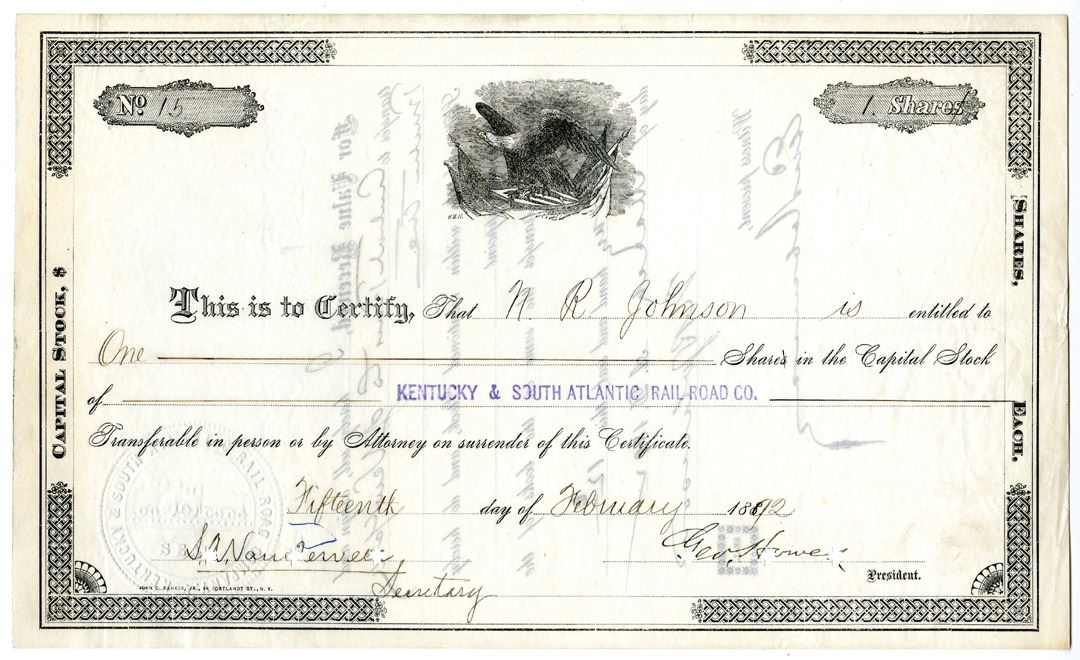 No 15
1. Shares
H.B.H.
This is to Certify, That N. R. Johnson is entitled to
One Shares in the Capital Stock
of KENTUCKY & SOUTH ATLANTIC RAIL ROAD CO.
Transferable in person or by Attorney on surrender of this Certificate.
Fifteenth day of February 1892
Geo. Howe
Secretary
President.
CAPITAL STOCK, $
SHARES,
EACH.
JOHN C. RANKIN, JR., 34 CORTLANDT ST., N. Y.
KENTUCKY & SOUTH RAIL ROAD COMPANY